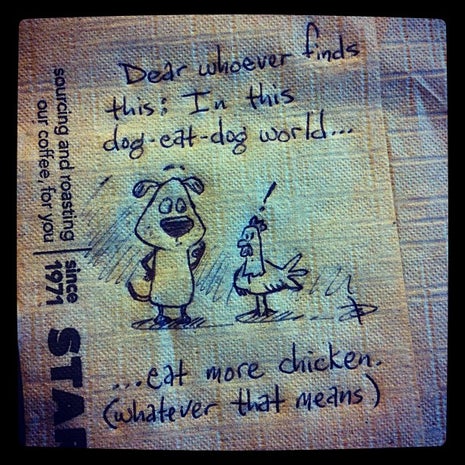 Dear whoever finds
this: In this
dog-eat-dog world...
!
....eat more chicken.
(whatever that means)
sourcing and roasting
our coffee, for you
since
1971
STAR